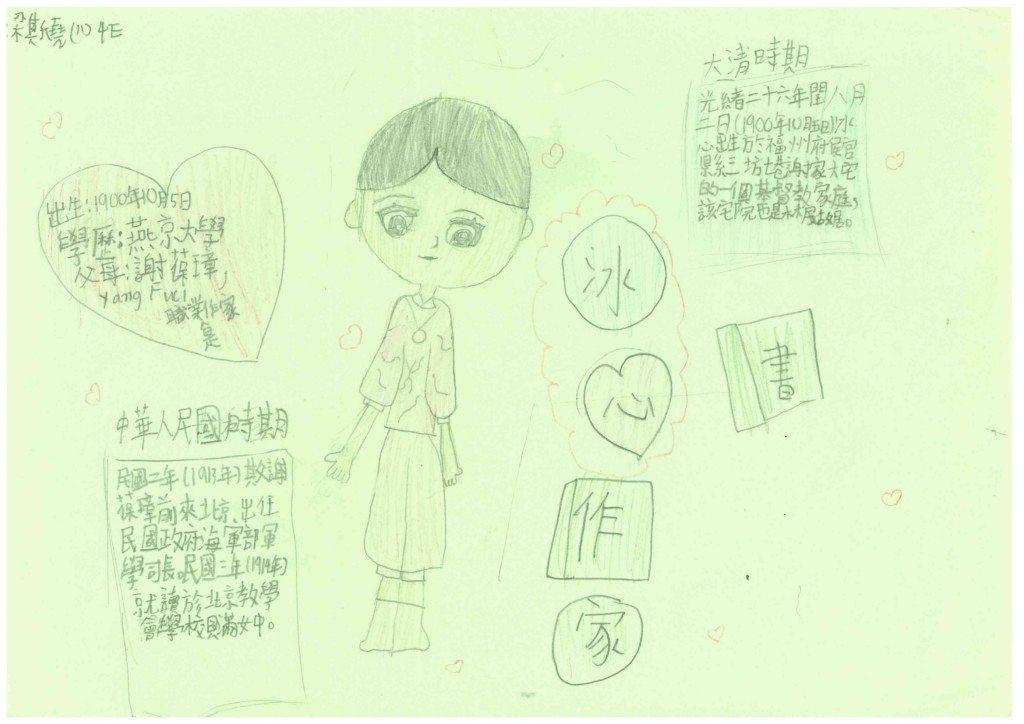 梁斯堯(11) 4E
出生:1900年10月5日
學歷:燕京大學
父母:謝葆璋,
Yang Fuci
職業作家
是
大清時期
光緒二十六年閏八月
二日(1900年10月5日)冰
心出生於福州府侯官
縣三坊七巷謝家大宅
的一個基督教家庭,
該宅院也是林覺民故居。
冰
心
作
家
書
中華人民國時期
民國二年(1913年)其父謝
葆璋前來北京、出任
民國政府海軍部軍
學司長。民國三年(1914年)
就讀於北京教學
會學校貝滿女中。